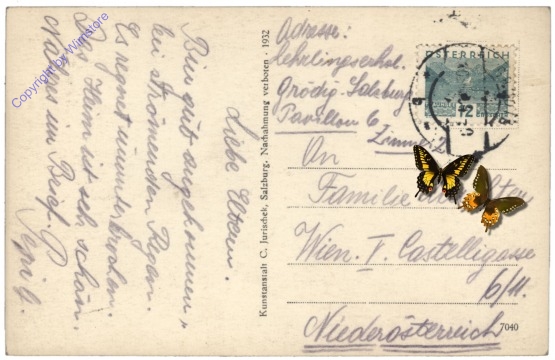 Liebe Eltern.
Bin gut angekommen,
bei strömenden Regen.
Es regnet ununterbrochen.
Das Heim ist seh schön.
Näheres im Brief.
Kunstanstalt C. Jurischek, Salzburg. Nachahmung verboten - 1932
Adresse:
Lehrlingserhol.
Grödig-Salzburg
Pavillon 6
ÖSTERREICH
12
An
Familie
Wien. V. Castelligasse
6/11.
Niederösterreich
7040
Copyright by Winstore